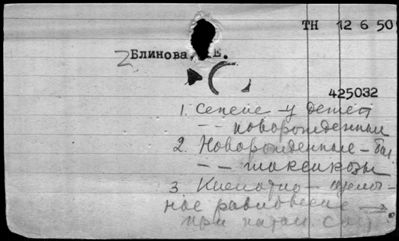 ТН 12 6 50
Блинова, Е.
425032
1. Сепсис у детей
-- новорожденных
2. Новорожденные -
-- токсикозы
3. Кислотно-щелоч-
ное равновесие -
при патол. сост.